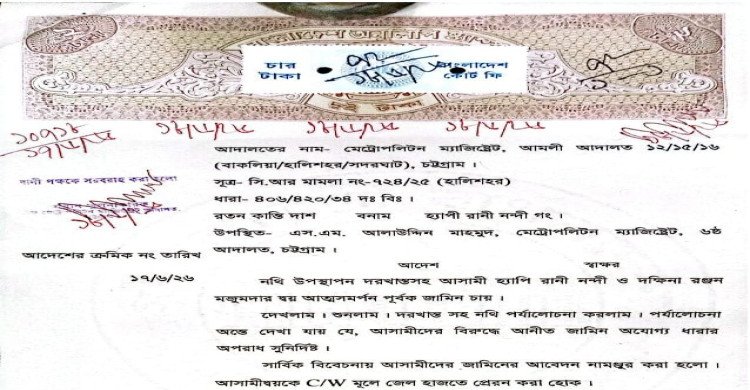 চার টাকা
বাংলাদেশ কোর্ট ফি
দুই টাকা
আদালতের নাম- মেট্রোপলিটন ম্যাজিষ্ট্রেট, আমলী আদালত ১২/১৫/১৬
(বাকলিয়া/হালিশহর/সদরঘাট), চট্টগ্রাম।
সূত্র- সি.আর মামলা নং-৭২৪/২৫ (হালিশহর)
ধারা- ৪০৬/৪২০/৩৪ দঃ বিঃ।
রতন কান্তি দাশ বনাম হ্যাপী রানী নন্দী গং।
উপস্থিত- এস.এম. আলাউদ্দিন মাহমুদ, মেট্রোপলিটন ম্যাজিষ্ট্রেট, ৬ষ্ঠ
আদালত, চট্টগ্রাম।
পক্ষকে সরবরাহ করা হলো
আদেশের ক্রমিক নং তারিখ
আদেশ স্বাক্ষর
১৭/৬/২৬
নথি উপস্থাপন দরখাস্তসহ আসামী হ্যাপি রানী নন্দী ও দক্ষিনা রঞ্জন
মজুমদার দ্বয় আত্মসমর্পন পূর্বক জামিন চায়।
দেখলাম। শুনলাম। দরখাস্ত সহ নথি পর্যালোচনা করলাম। পর্যালোচনা
অন্তে দেখা যায় যে, আসামীদের বিরুদ্ধে আনীত জামিন অযোগ্য ধারার
অপরাধ সুনির্দিষ্ট।
সার্বিক বিবেচনায় আসামীদের জামিনের আবেদন নামঞ্জুর করা হলো।
আসামীদ্বয়কে C/W মূলে জেল হাজতে প্রেরন করা হোক।